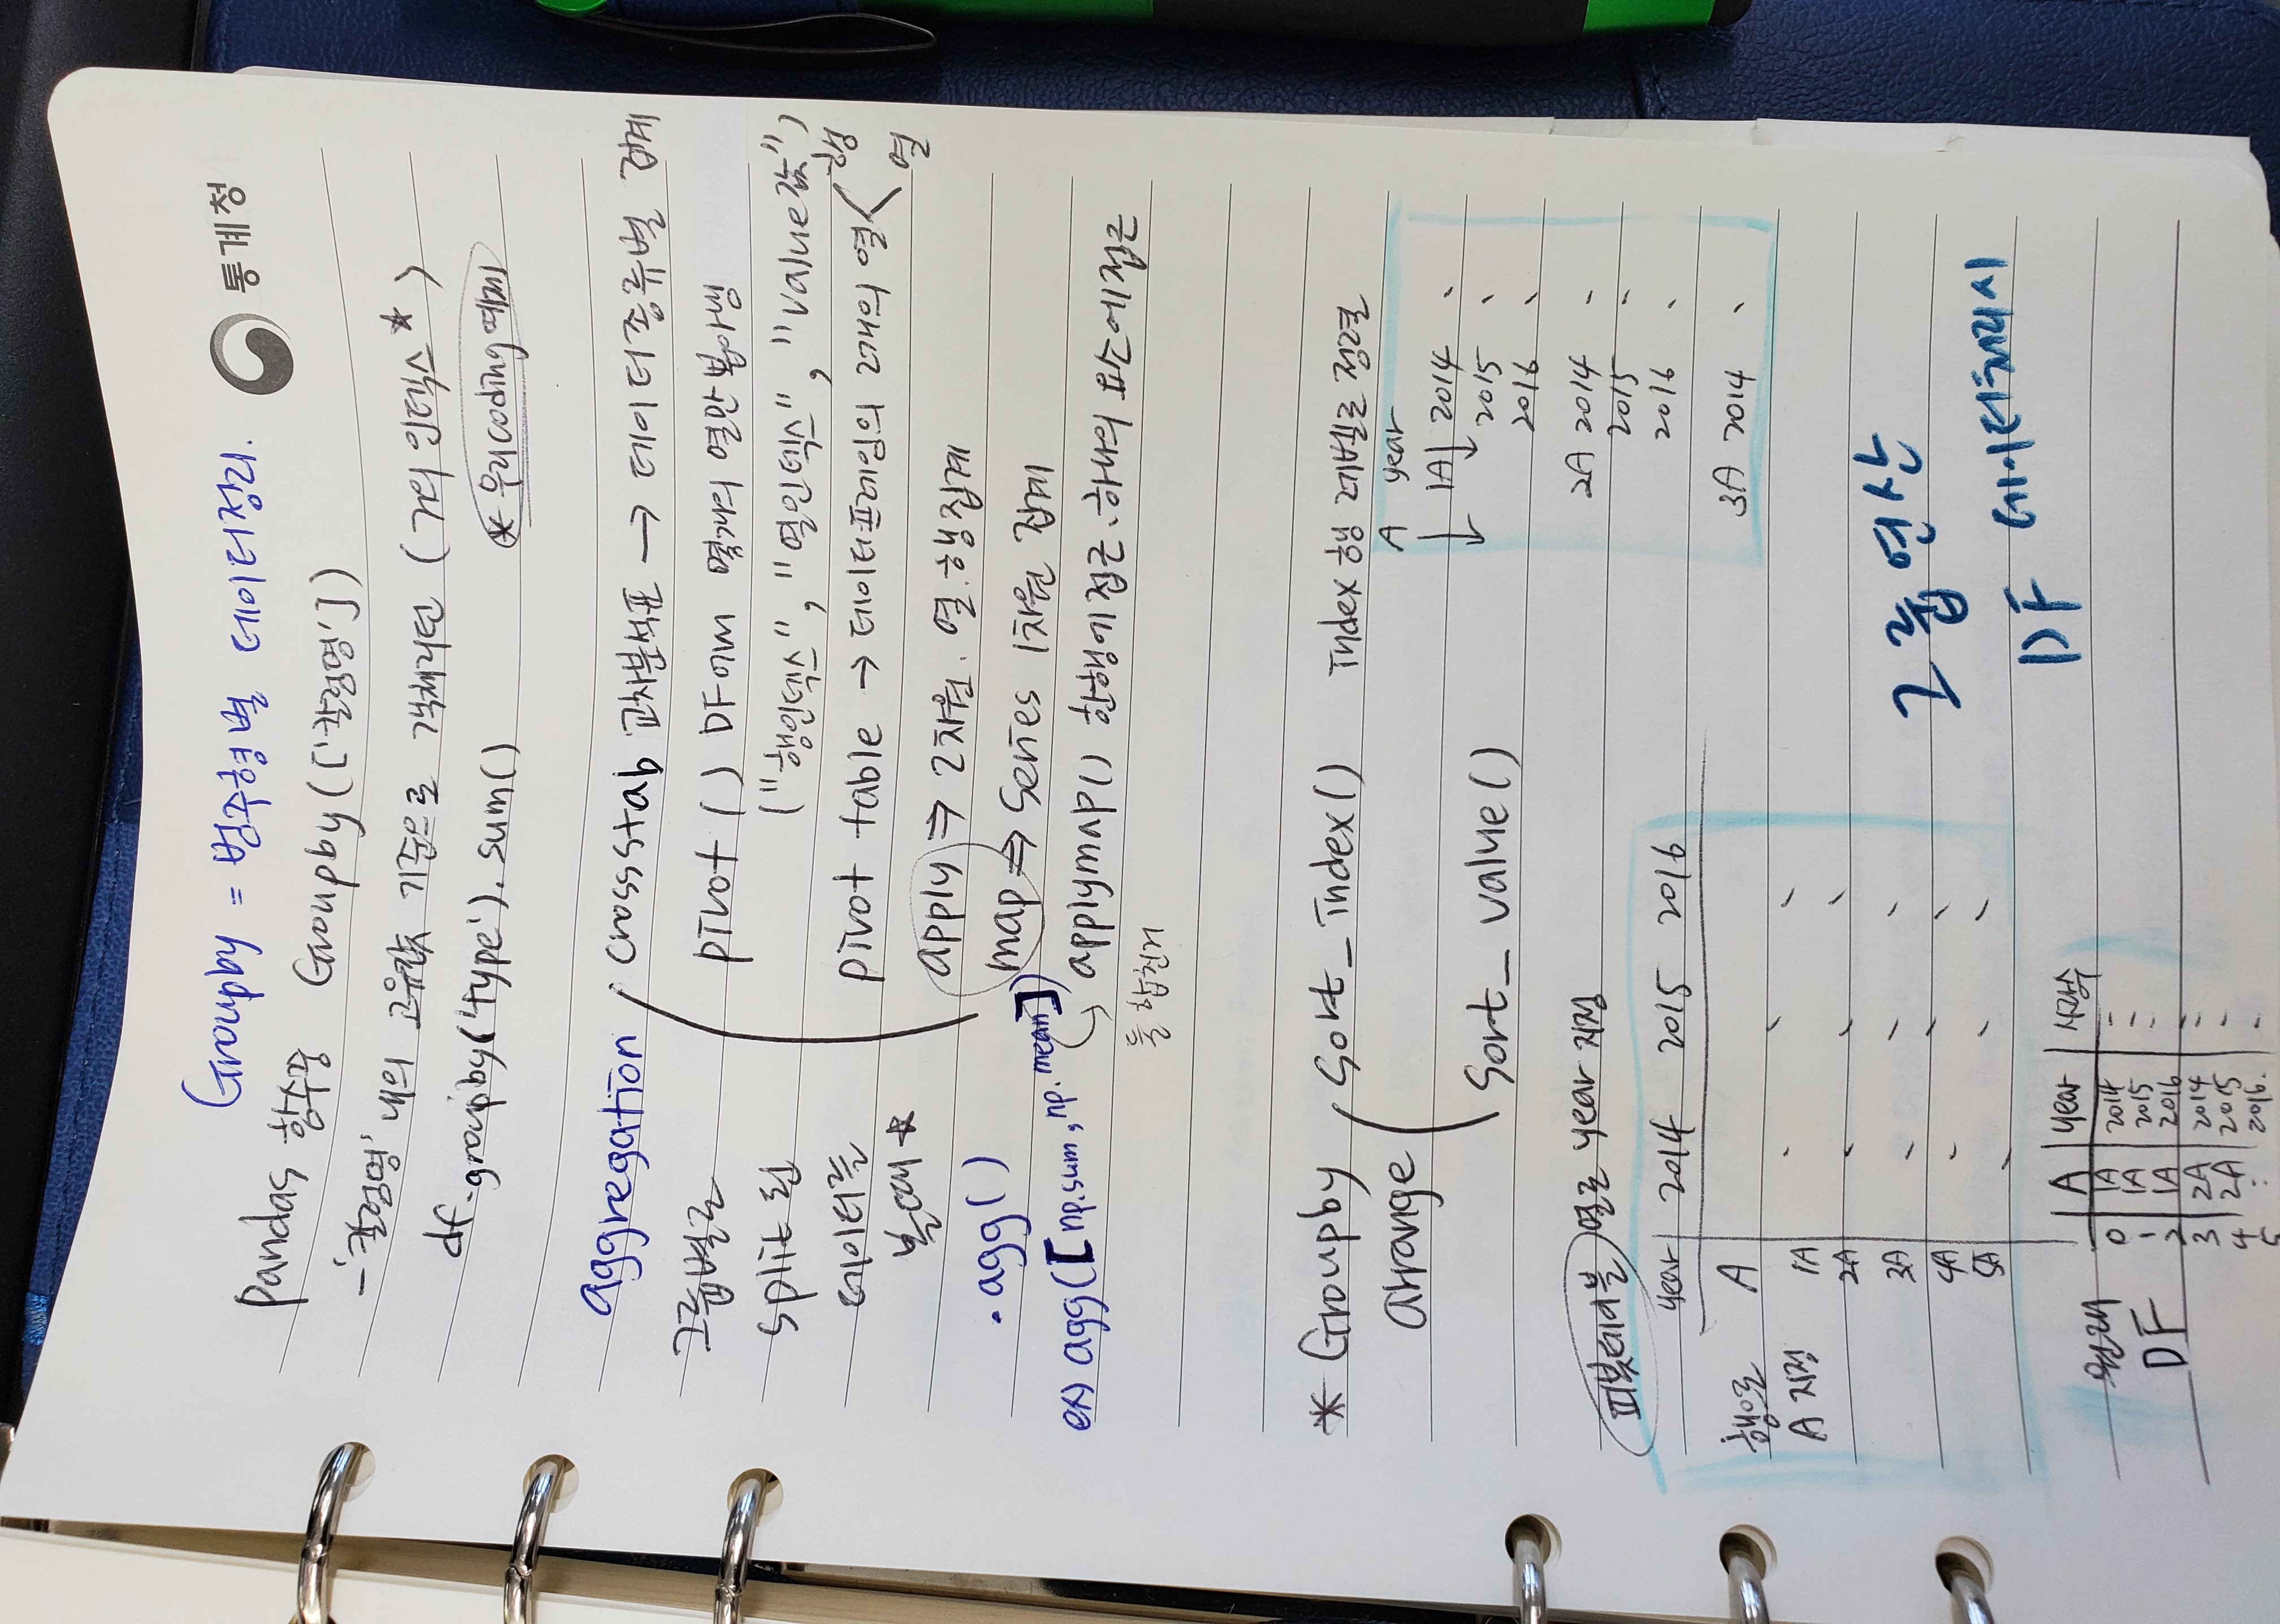 Groupby = 범주형별 데이터정리.
통계청
pandas 함수중 Groupby(['칼럼명'])
-'칼럼명' 내의 고유값 기준으로 객체리턴 (거의 인덱스★)
df.groupby('type').sum()
* 우리coding예제
aggregation
그룹별로
split된
데이터를
볼때 ☆
.agg()
ex) agg([np.sum, np.mean])
crosstab 교차분석표 → 데이터종류별 집계
pivot () DF에서 몇개의 열만 뽑아냄
("행인덱스", "열인덱스", "value값")
pivot table → 데이터프레임의 2개의 열 < 행
열
apply ⇒ 2차원. 열.행집계
map ⇒ Series 1차원 집계
applymap() 한행에접근.하나의 요소에접근
둘 합친거
* Groupby
arrange
sort_index() index 행 레벨로 정렬
sort_value()
A year
1A 2014
2015
2016
2A 2014
2015
2016
3A 2014
피봇테이블 열로 year 지정
year 2014 2015 2016
행으로 A
A 지정 1A
2A
3A
4A
5A
그룹연산
DF 데이터처리시
원래
DF
A year
0 1A 2014
1 1A 2015
2 1A 2016
3 2A 2014
4 2A 2015
5 : 2016.